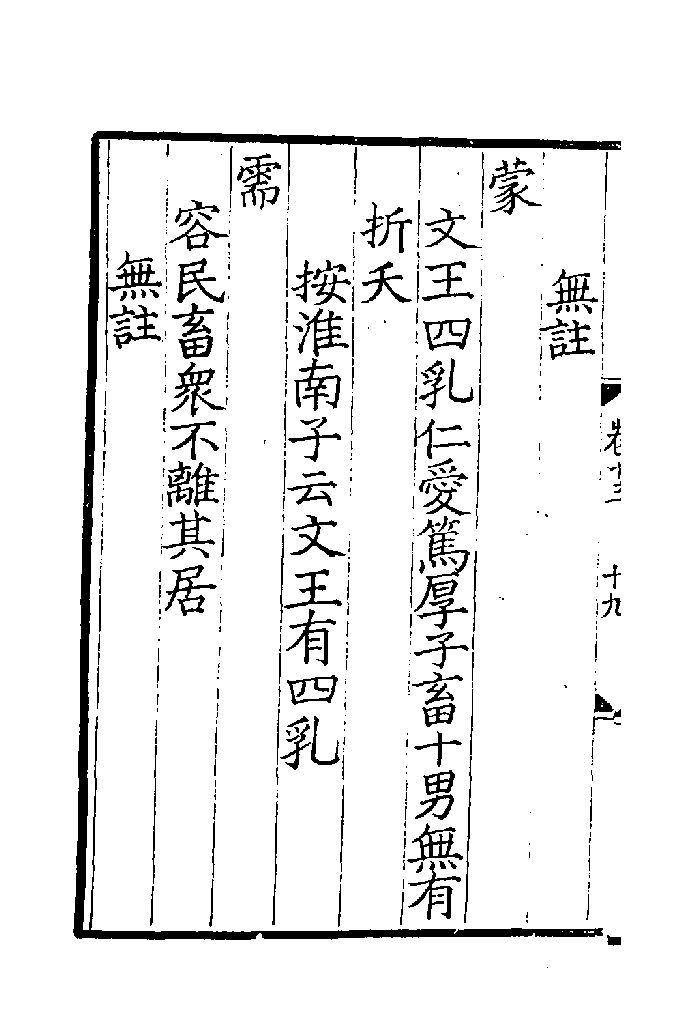 卷十三
十九
無註
蒙
文王四乳仁愛篤厚子畜十男無有
折夭
按淮南子云文王有四乳
需
容民畜衆不離其居
無註